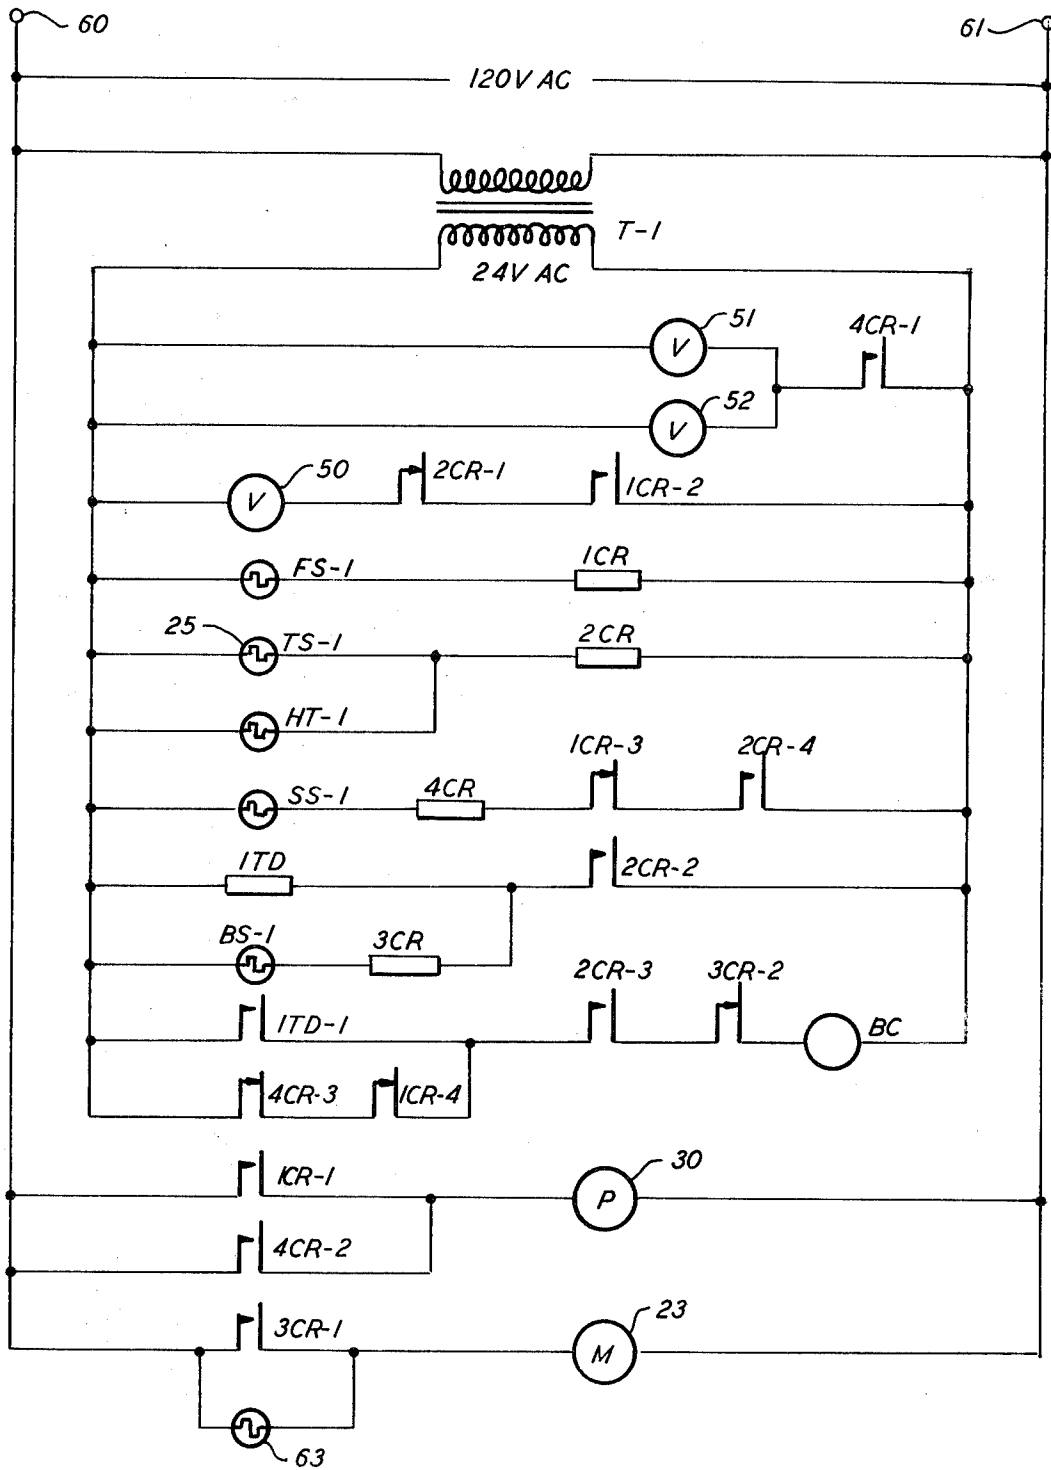 60
61
120V AC
T-1
24V AC
51
4CR-1
V
52
V
50
V
2CR-1
1CR-2
FS-1
1CR
25
TS-1
2CR
HT-1
1CR-3
2CR-4
SS-1
4CR
1TD
2CR-2
BS-1
3CR
2CR-3
3CR-2
1TD-1
BC
4CR-3
1CR-4
1CR-1
30
P
4CR-2
3CR-1
23
M
63